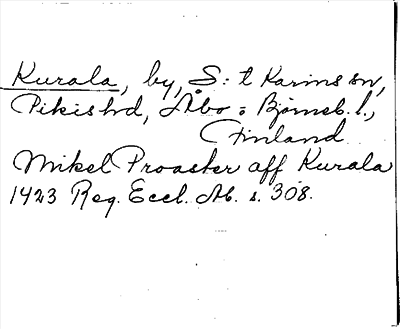 Kurala, by, S:t Karins sn,
Pikis hd, Åbo o Björneb. l.,
Finland
Mikel Proaster aff Kurala
1423 Reg. Eccl. Ab. s. 308.